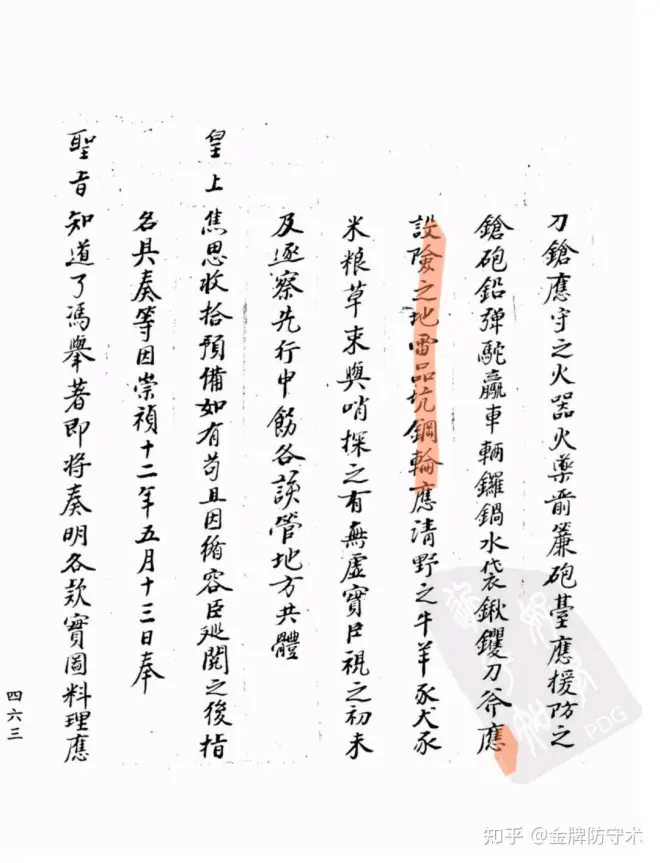 刀鎗應守之火器火藥前簾砲臺應援防之
鎗砲鉛彈駝驘車輛鑼鍋水袋鍬钁刀斧應
設險之地雷品坑鋼輪應清野之牛羊豕犬豕
米粮草束與哨探之有無虛實臣視之初未
及逐察先行申飭各該管地方共體
皇上焦思收拾預備如有苟且因循容臣廵閱之後指
名具奏等因崇禎十二年五月十三日奉
聖旨知道了馮舉著即將奏明各款實圖料理應
四六三
PDG
知乎 @金牌防守术